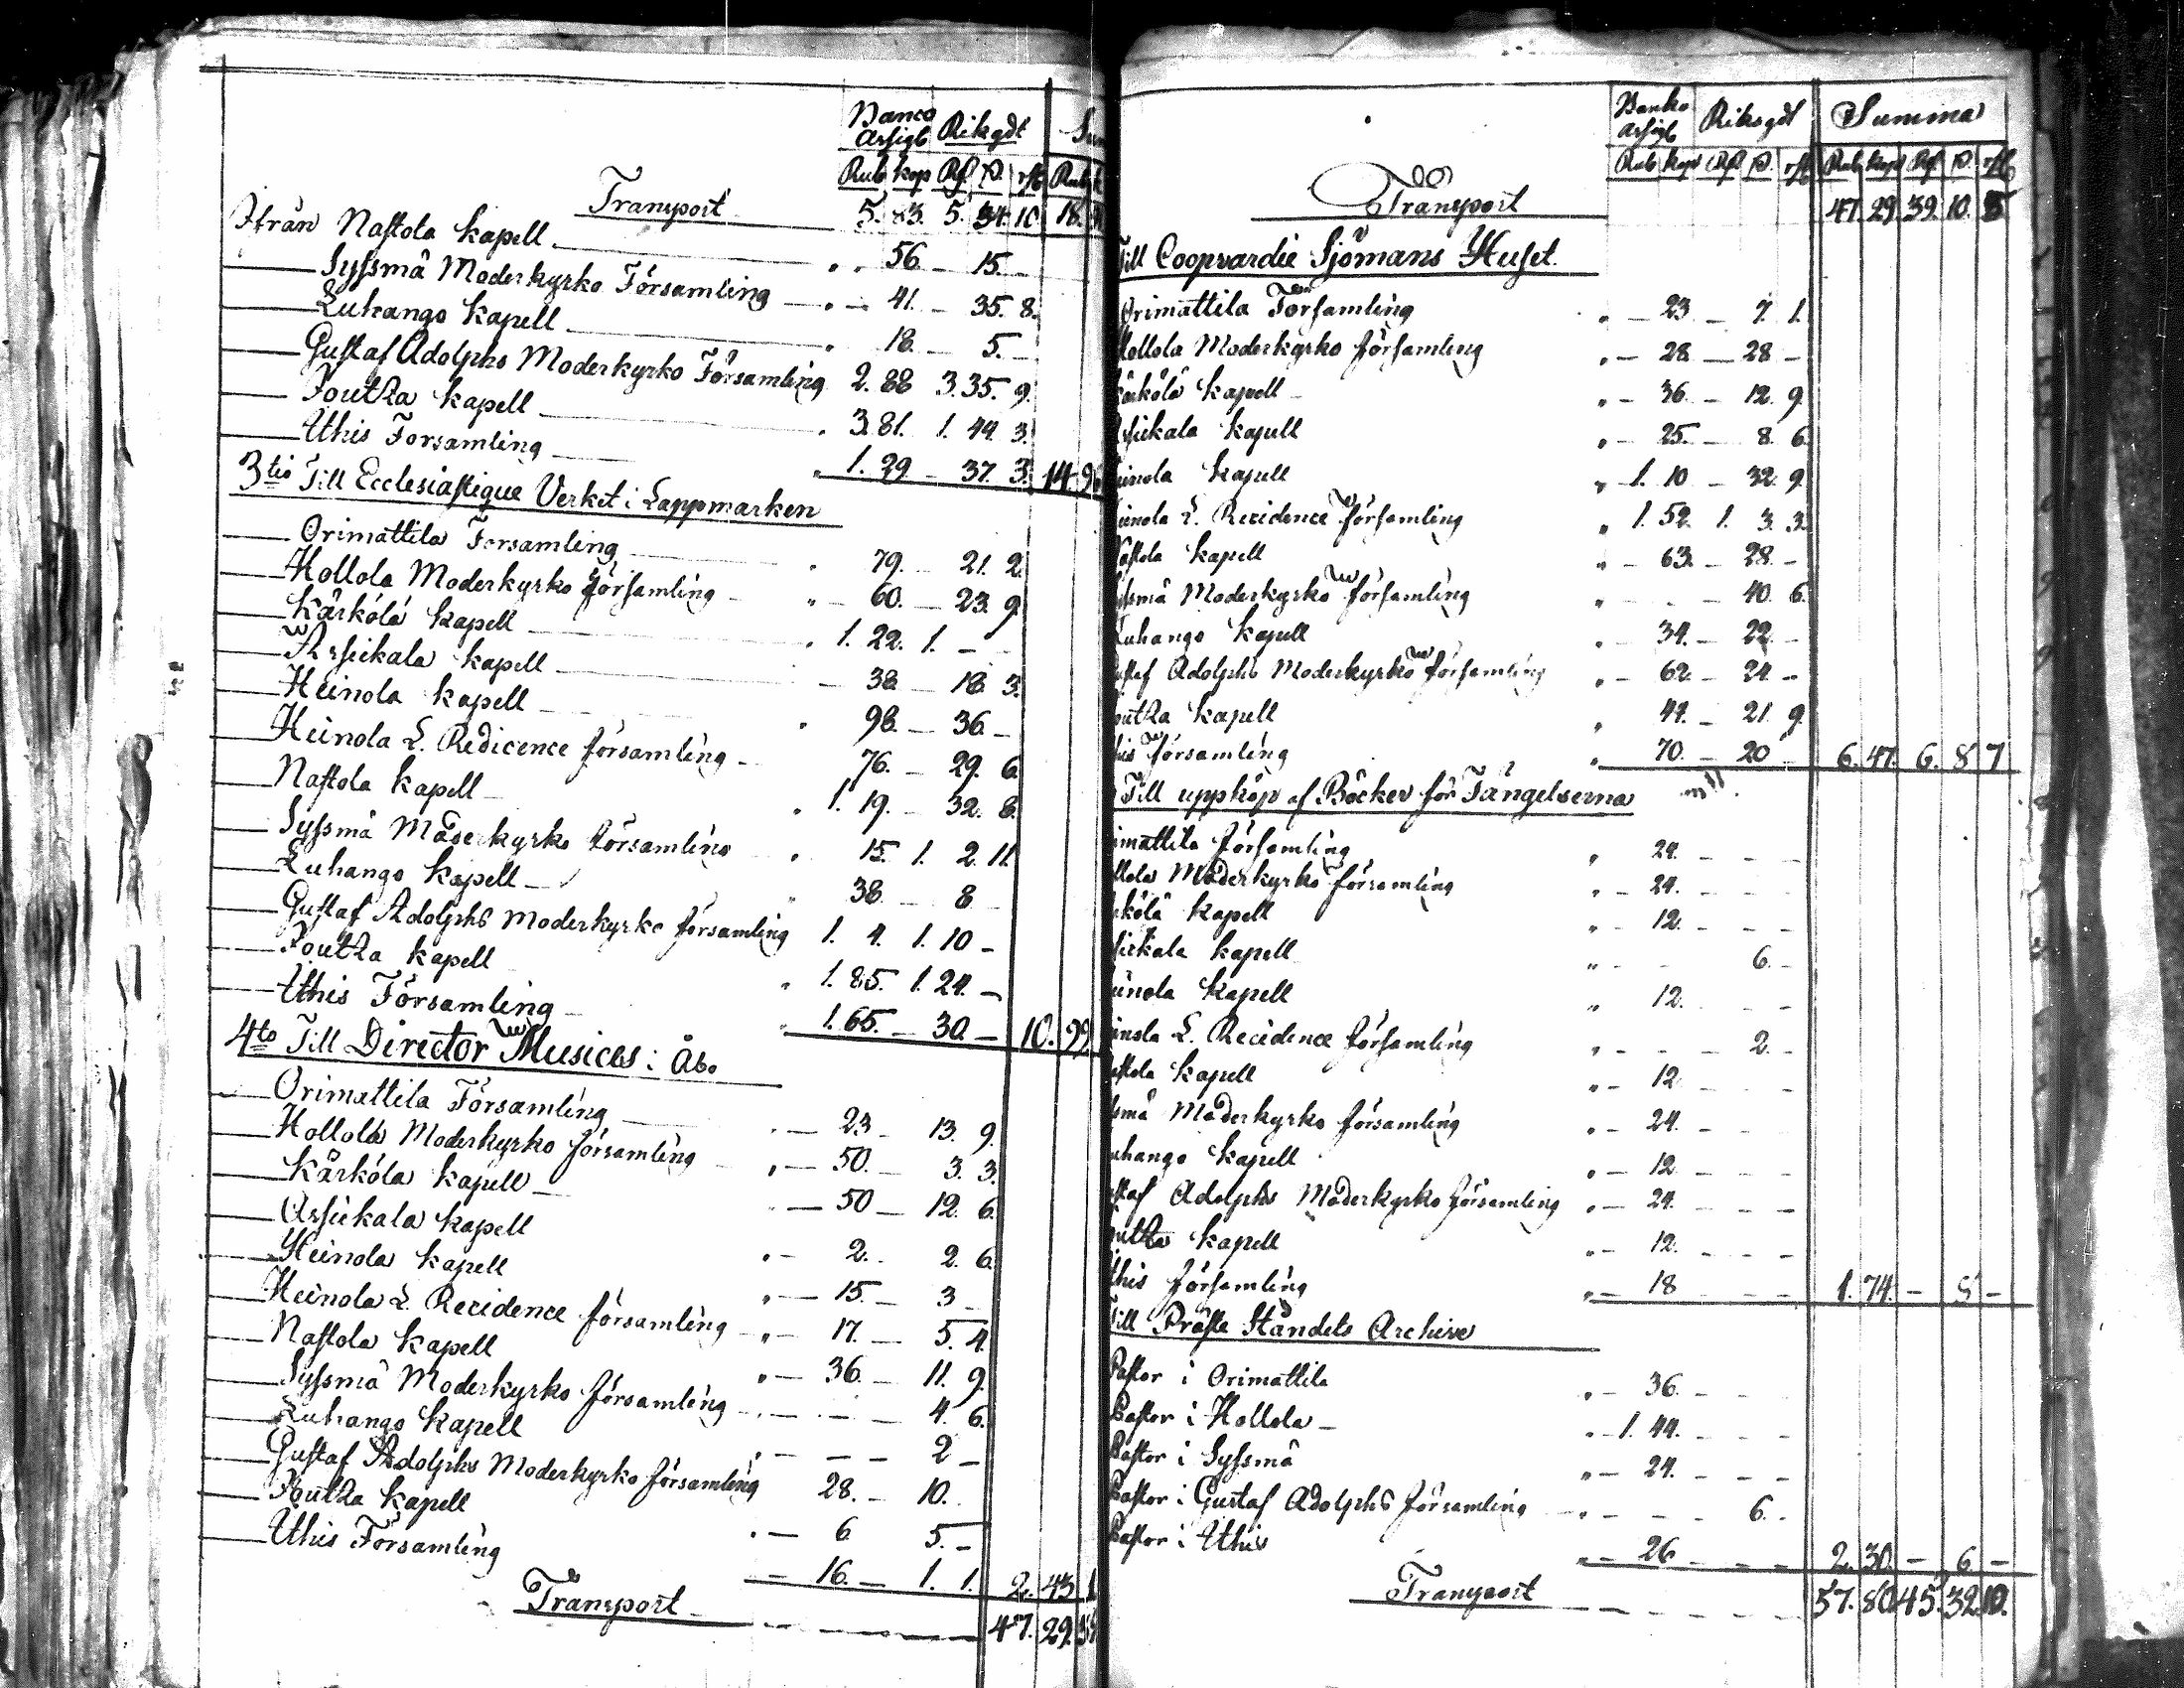 Banco Assigt Riksgdt Su
Rub kop Rd s. rst Rub k
Transport 5. 83. 5. 34. 10 18.
Ifrån Nastola Kapell " . 56. – 15. –
— Syssmä Moderkyrko Församling " – 41. – 35. 8.
— Luhango Kapell " 18. – 5. –
— Gustaf Adolphs Moderkyrko Församling 2. 88 3. 35. 9.
— Joutza Kapell . 3. 81. 1. 44. 3.
— Uthis Forsamling " 1. 29 – 37. 3. 14. 9
3tio Till Ecclesiastique Verket i Lappmarken
— Orimattila Forsamling . 79. – 21. 2.
— Hollola Moderkyrko församling " – 60. – 23. 9.
— Kärkölä Kapell . 1. 22. 1. – –
— Assickala Kapell – 38 – 18. 3.
— Heinola Kapell . 98. – 36 –
— Heinola L. Redicence församling – 76. – 29. 6.
— Nastola Kapell . 1. 19. – 32. 8.
— Syssmä Moderkyrko församling . 15. 1. 2. 11.
— Luhango Kapell – " 38. – 8 –
— Gustaf Adolphs Moderkyrko församling 1. 4. 1. 10 –
— Joutza Kapell . 1. 85. 1. 24. –
— Uthis Församling " 1. 65. – 30. – 10. 99.
4to Till Director Musices i Åbo
— Orimattila Församling . – 23 – 13. 9.
— Hollola Moderkyrko församling " – 50. – 3. 3.
— Kärkóla Kapell – " – 50 – 12. 6.
— Assickala Kapell " – 2. – 2. 6.
— Heinola Kapell " – 15. – 3 –
— Heinola L. Recidence församling " – 17. – 5. 4.
— Nastola Kapell " – 36. – 11. 9.
— Syssmä Moderkyrko församling . – – – 4. 6.
— Luhango Kapell . – – – 2 –
— Gustaf Adolphs Moderkyrko församling 28. – 10.
— Joutza Kapell . – 6 5. –
— Uthis Församling – 16. – 1. 1. 2. 43. 1
Transport 47. 29.
Banko assigt Riksgdt Summa
Rub kop Rd s. rst Rub kop Rd s. rst
Transport 47. 29. 39. 10. 5
Till Coopvardie Sjömans Huset.
Orimattila Församling " – 23 – 7. 1.
Hollola Moderkyrko församling " – 28 – 28 –
Kärkölä Kapell " – 36. – 12. 9.
ssickala Kapell " – 25. – 8. 6.
einola Kapell " – 1. 10 – 32. 9.
einola L. Recidence församling " 1. 52. 1. 3. 3.
Nastola Kapell " – 63. – 28. –
yssmä Moderkyrko församling " – . – 40. 6.
Luhango Kapell " – 34. – 22. –
ustaf Adolphs Moderkyrko församling " – 62. – 24. –
outza Kapell " 47. – 21. 9.
his församling " 70. – 20 – 6. 47. 6. 8 7
Till uppköp af Böcker för Fängelserna
imattila församling " 24. – – –
llola Moderkyrko församling " – 24. – – –
rkölä Kapell " – 12. – – –
sickala Kapell " – – 6. –
einola Kapell " 12. – –
inola L. Recidence församling " – – – 2. –
astola Kapell " – 12. – –
ssmä Moderkyrko församling " – 24. – –
uhango Kapell " – 12 – – –
staf Adolphs Moderkyrko församling " – 24. – – –
outza Kapell " – 12. – – –
this församling " – 18 – – – 1. 74. – 8 –
Till Präste Ståndets Archive
Pastor i Orimattila " – 36. – –
Pastor i Hollola – " – 1. 44. – – –
Pastor i Syssmä " – 24. – – –
Pastor i Gustaf Adolphs församling – – – 6. –
Pastor i Uthis " – 26 – – – 2. 30. – 6 –
Transport 57. 80. 45. 32. 10.